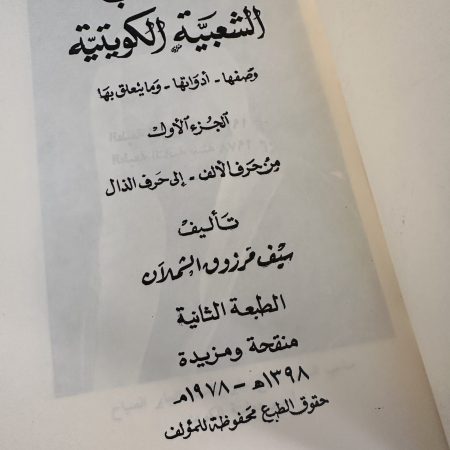 الشعبيَّة الكويتيَّة
وصفها - أدواتها - وما يتعلق بها
الجزء الأول
من حرف الألف - إلى حرف الذال
تأليف
سيف مرزوق الشملان
الطبعة الثانية
منقحة ومزيدة
١٣٩٨هـ - ١٩٧٨مـ
حقوق الطبع محفوظة للمؤلف